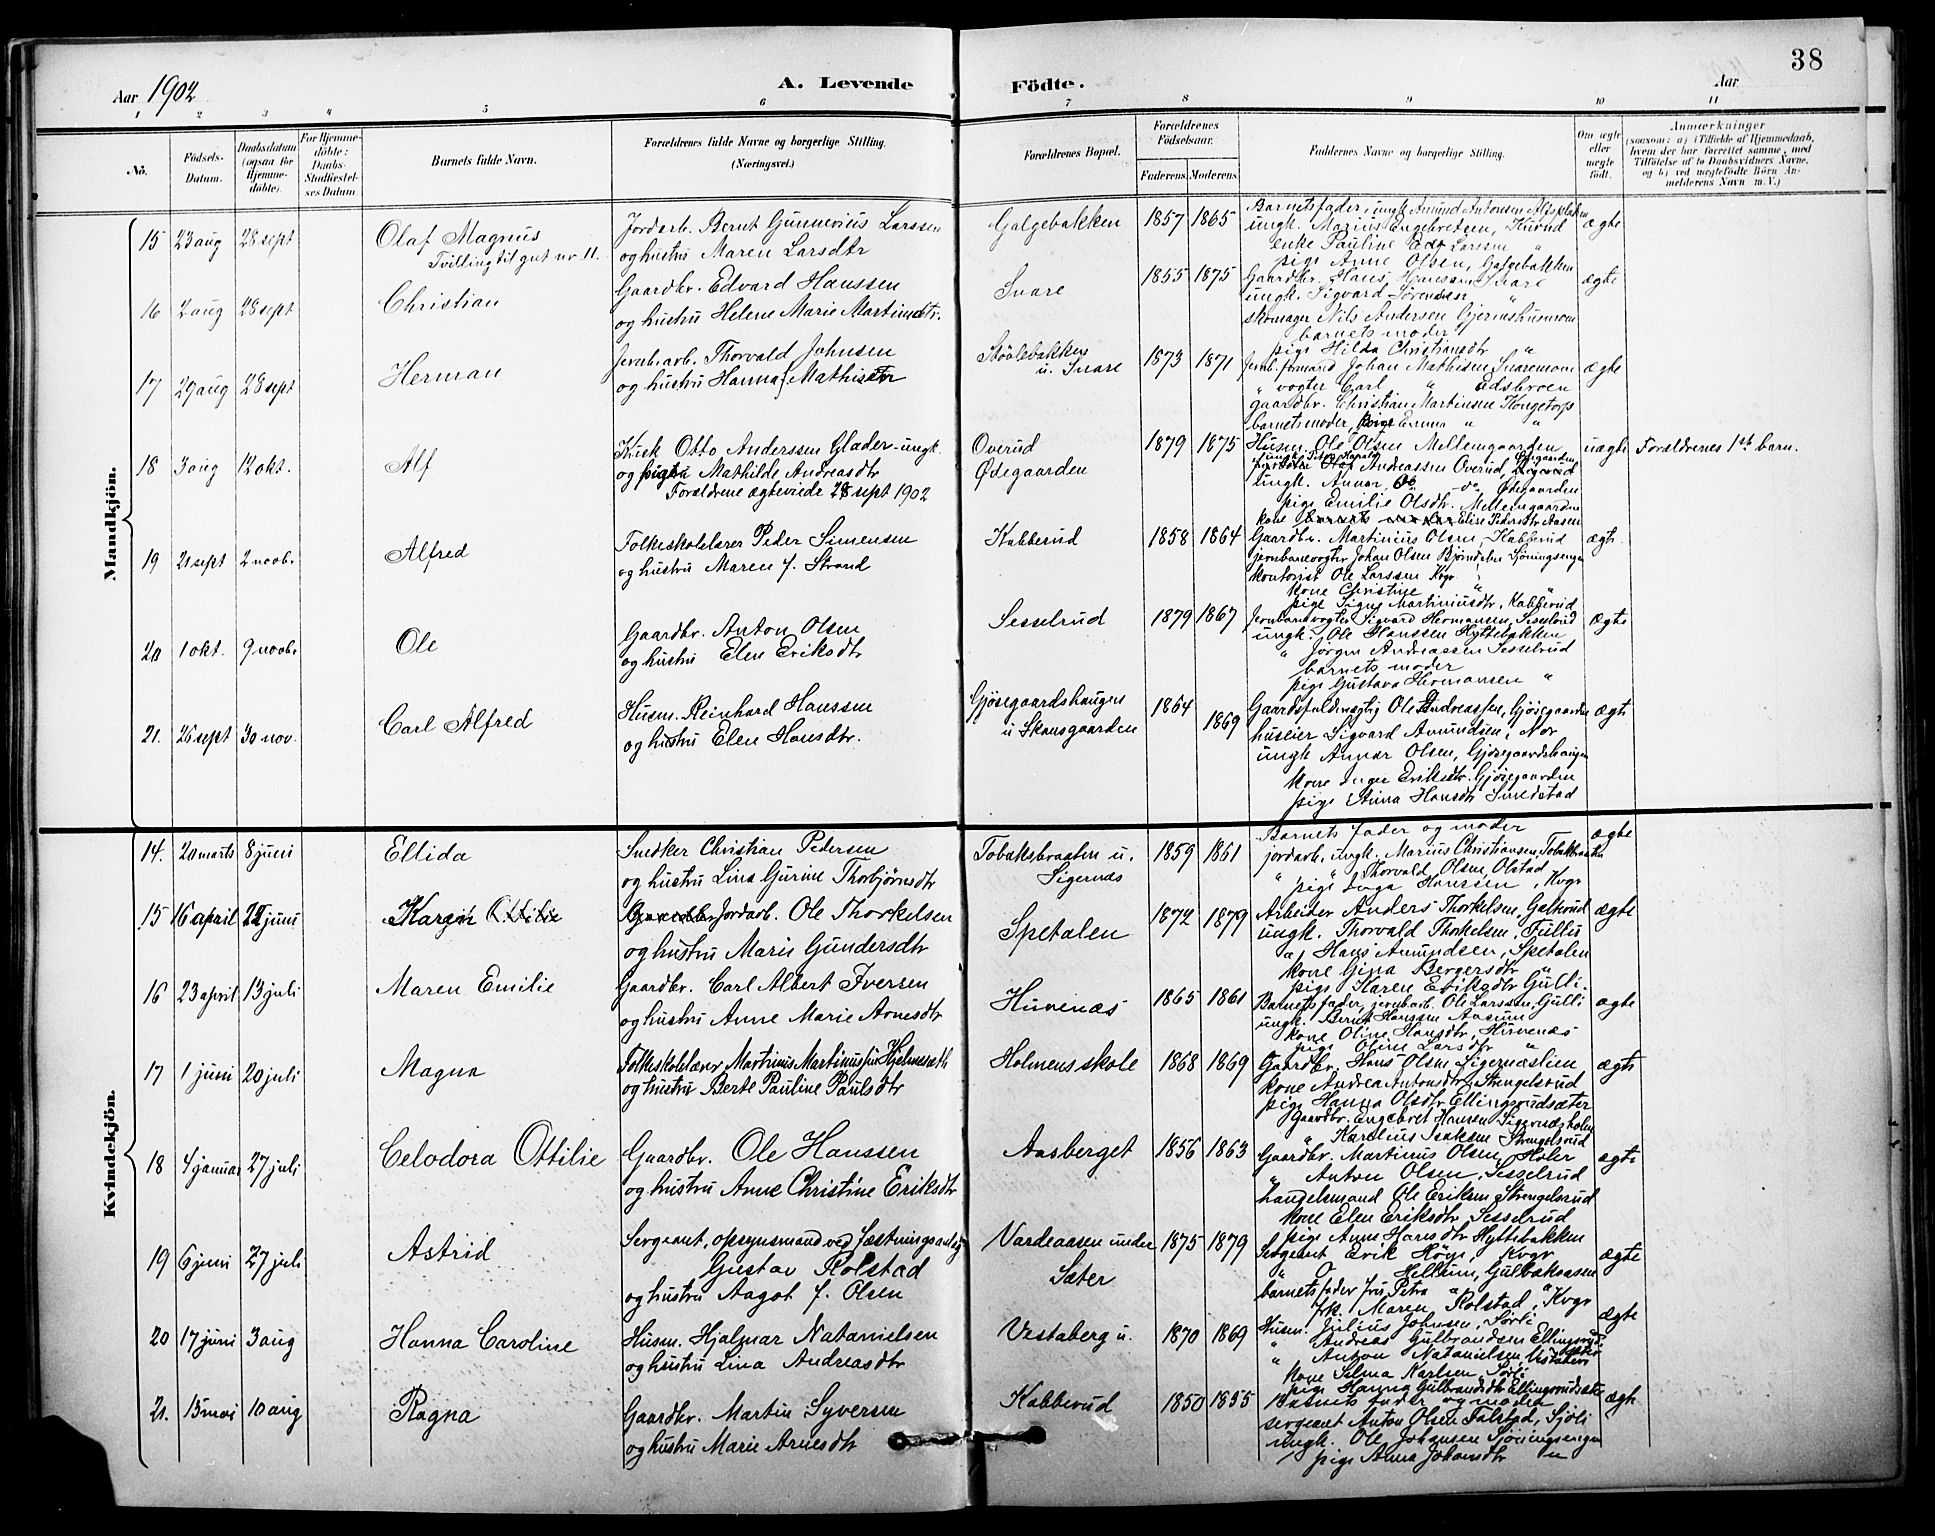 38
Aar 1902
A. Levende
Födte.
Aar
1 2 3 4 5 6 7 8 9 10 11
No.
Födsels-Datum.
Daabsdatum (ogsaa for Hjemme-döbte).
For Hjemme-döbte: Daabs-Stadfæstelses Datum.
Barnets fulde Navn.
Forældrenes fulde Navne og borgerlige Stilling. (Næringsvei.)
Forældrenes Bopæl.
Forældrenes Födselsaar.
Faderens. Moderens.
Faddernes Navne og borgerlige Stilling.
Om ægte eller uægte födt.
Anmærkninger
(saasom: a) i Tilfælde af Hjemmedaab, hvem der har forrettet samme, med Tilföielse af to Daabsvidners Navne, og b) ved uægtefödte Börn Anmelderens Navn m. V.)
Mandkjön.
15 23 aug 28 sept Olaf Magnus
Tvilling til gut nr 11.
Jordarb. Bernt Gunnerius Larssen
og hustru Maren Larsdtr
Galgebakken 1857 1865
Barnets fader, ungk. Amund Antonsen
ungk. Marius Engebretsen, Kurud
enke Pauline Larssen "
pige Anne Olsen, Galgebakken
ægte
16 2 aug 28 sept Christian
Gaardbr. Edvard Hanssen
og hustru Helene Marie Martinsdtr.
Snare 1855 1875
Gaardbr. Hans Hanssen Snare
ungk. Sigvard Sørensen "
skomager Nils Andersen
barnets moder
pige Hilda Christiansdtr "
ægte
17 29 aug 28 sept Herman
Jernb.arb. Thorvald Johnsen
og hustru Hanna f. Mathisdtr
Støvlebakken
u. Snare 1873 1871
Jernb. formand Johan Mathisen Snaremoen
" vogter Carl " Edsbroen
gaardbr. Christian Martinsen Kongetorp
barnets moder, pige Emma " "
ægte
18 3 aug 12 okt. Alf
Kusk Otto Anderssen Glader ungk.
og pige Mathilde Andreasdtr
Forældrene ægteviede 28 sept 1902
Overud
Ødegaarden 1879 1875
Husm. Ole Olsen Mellemgaarden
Olaf Andreassen Overud
ungk. Annar, do -do- Ødegaarden
pige Emilie Olsdtr. Mellemgaarden
kone Elise Pedersdtr Aasen
uægte Forældrenes 1ste barn.
19 21 sept 2 novbr Alfred
Folkeskolelærer Peder Simensen
og hustru Maren f. Strand
Kabberud 1858 1864
Gaardbr. Martinius Olsen, Kabberud
jernbanevogter Johan Olsen Bjørndalen Sjøningsengen
kontorist Ole Larssen Kvgr.
kone Christine " "
pige Signe Martiniusdtr, Kabberud
ægte
20 1 okt. 9 novbr Ole
Gaardbr. Anton Olsen
og hustru Elen Eriksdtr
Sesselrud 1879 1867
Jernbanevogter Sigvard Hermansen, Sesselrud
ungk. Ole Hanssen Hyttebakken
" Jørgen Andreassen Sesselrud
barnets moder
pige Gustava Hermansen "
ægte
21. 26 sept 30 nov. Carl Alfred
Husm. Reinhard Hanssen
og hustru Elen Hansdtr.
Gjøsegaardshaugen
u. Skansgaarden 1864 1869
Gaardsfuldmægtig Ole Andreassen, Gjøsegaarden
huseier Sigvard Amundsen, Nor
ungk. Annar Olsen, Gjøsegaardshaugen
kone Inger Eriksdtr. Gjøsegaarden
pige Anna Hansdtr Smedstad
ægte
Kvindekjön.
14. 20 marts 8 juni Ellida
Snedker Christian Pedersen
og hustru Lina Gurine Thorbjørnsdtr
Tobaksbraaten u.
Sigernæs 1859 1861
Barnets fader og moder
jordarb. ungk. Marius Christiansen, Tobaksbraaten
" " Thorvald Olsen, Olstad
pige Inga Hanssen, Kvgr
ægte
15 16 april 22 juni Karen Ottilie
Gaardbr Jordarb. Ole Thorkelsen
og hustru Marie Gundersdtr
Spetalen 1872 1879
Arbeider Anders Thorkelsen, Galterud
ungk. Thorvald Thorkelsen, Fulltu
" Hans Amundsen, Spetalen
kone Gina Bergersdtr "
pige Karen Eriksdtr Gulli.
ægte
16 23 april 13 juli Maren Emilie
Gaardbr. Carl Albert Iversen
og hustru Anne Marie Arnesdtr
Huvenæs 1865 1861
Barnets fader, jernb.arb. Ole Larssen, Gulli
ungk. Bernt Hanssen Aasum
kone Oline Hansdtr, Huvenæs
pige Oline Larsdtr "
ægte
17 1 juni 20 juli Magna
Folkeskolelærer Martinius Martiniussen Hjelmsæth
og hustru Berte Pauline Paulsdtr
Holmens skole 1868 1869
Gaardbr. Hans Olsen Sigernæslien
kone Andrea Antonsdtr, Strengelsrud
pige Hanna Olsdtr Ellingsrudsæter
Gaardbr. Engebret Hansen Sigernæsholm
" Karelius Isaksen Strengelsrud
ægte
18 4 januar 27 juli Celodora Ottilie
Gaardbr. Ole Hanssen
og hustru Anne Christine Eriksdtr
Aasberget 1856 1863
Gaardbr. Martinius Olsen, Holer
" Anton Olsen, Sesselrud
handelsmand Ole Eriksen Strengelsrud
kone Elen Eriksdtr Sesselrud
pige Anne Hansdtr Hyttebakken
ægte
19 6 juni 27 juli Astrid
Sergeant, opsynsmand ved Fæstningsanlæg
Gustav Rolstad
og hustru Aagot f. Olsen
Vardeaasen under
Sæter 1875 1879
Sergeant Erik Høye, Kvgr
" O. Hellum, Gulbaksaasen
barnets fader fru Petra " "
frk. Maren Rolstad, Kvgr
ægte
20 17 juni 3 aug Hanna Caroline
Husm. Hjalmar Natanielsen
og hustru Lina Andreasdtr
Vestaberg u. 1870 1869
Husm. Julius Johnsen, Sørli
" Andreas Gulbrandsen Ellingsrudsæter
" Anton Natanielsen, Vestaberg
kone Selma Karlsen, Sørli
pige Hanna Gulbrandsdtr Ellingsrudsæter
ægte
21. 15 mai 10 aug Ragna
Gaardbr. Martin Syversen
og hustru Marie Arnesdtr
Kabberud 1850 1855
Barnets fader og moder
sergeant Anton Olsen Falstad, Sjøli
ungk. Ole Johansen Sjøningsengen
pige Anna Johansdtr "
ægte